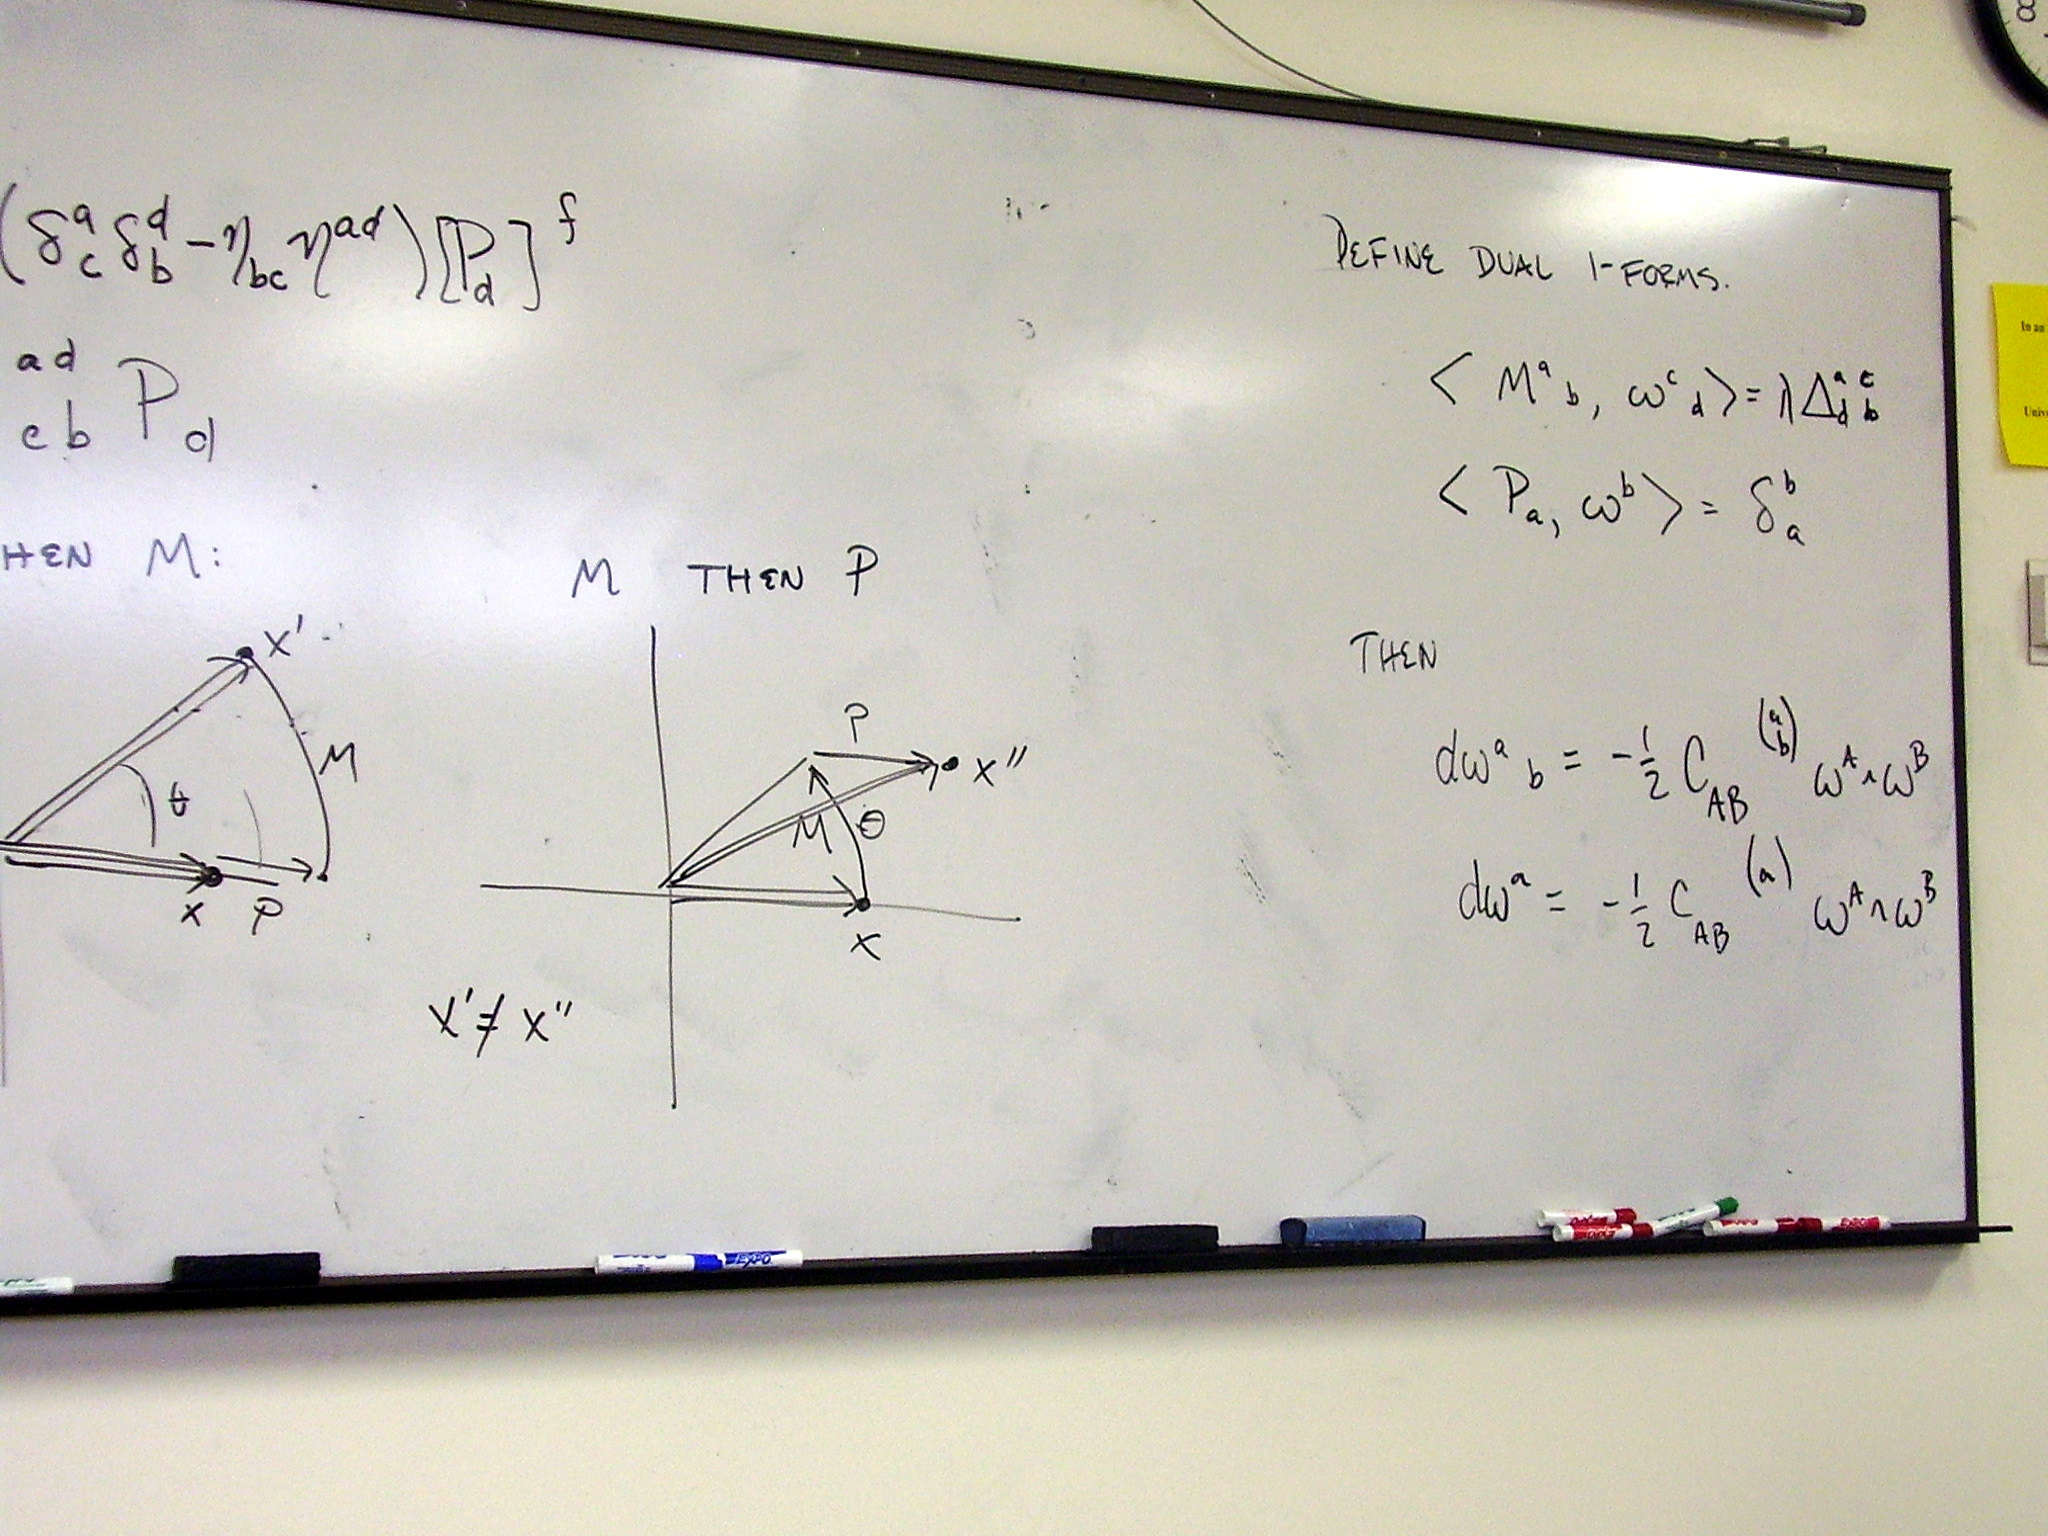 (δ^a_c δ^d_b - η_bc η^ad) [P_d]^f
a d
c b P_d
HEN M:
X'
M
θ
X P
M THEN P
P
X''
M θ
X
X' ≠ X''
DEFINE DUAL 1-FORMS.
< M^a_b, ω^c_d > = λ Δ^a_d^c_b
< P_a, ω^b > = δ^b_a
THEN
dω^a_b = -1/2 C_AB^(a_b) ω^A ∧ ω^B
dω^a = -1/2 C_AB^(a) ω^A ∧ ω^B
EXPO
In an
Univ
8